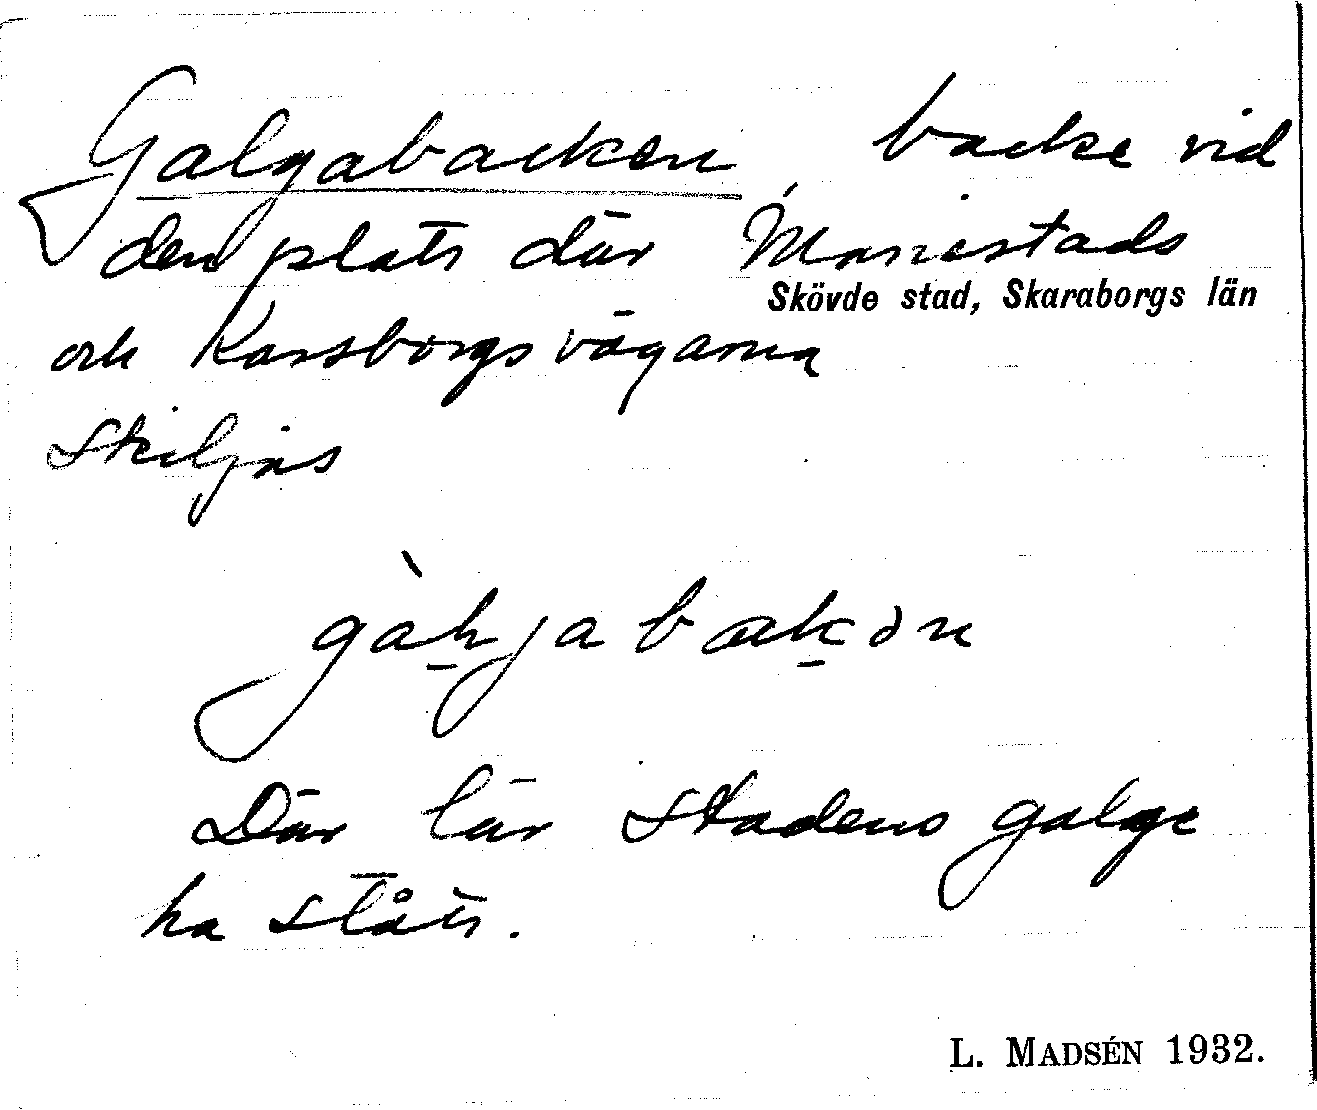 Galgabacken, backe vid
den plats där Mariestads
Skövde stad, Skaraborgs län
och Karlsborgsvägarna
skiljas
Där lär stadens galge
ha stått.
L. MADSÉN 1932.